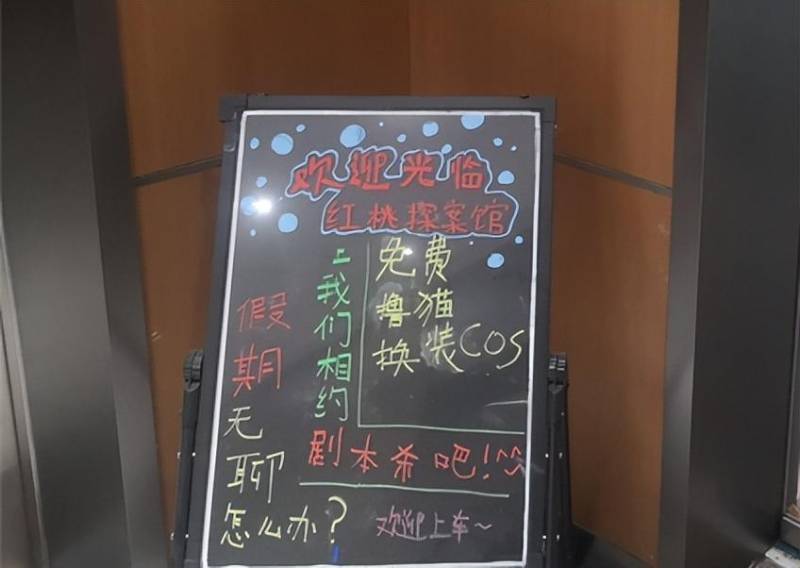 欢迎光临
红桃探案馆
假期无聊
怎么办?
我们相约
剧本杀吧!^^
免费
撸猫
换装COS
欢迎上车~